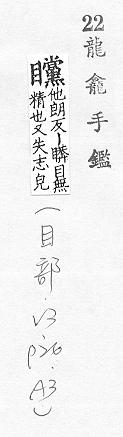 22
龍龕手鑑
矘他朗反丨瞵目無
精也又失志皃
(目部.V3
p26.A3)